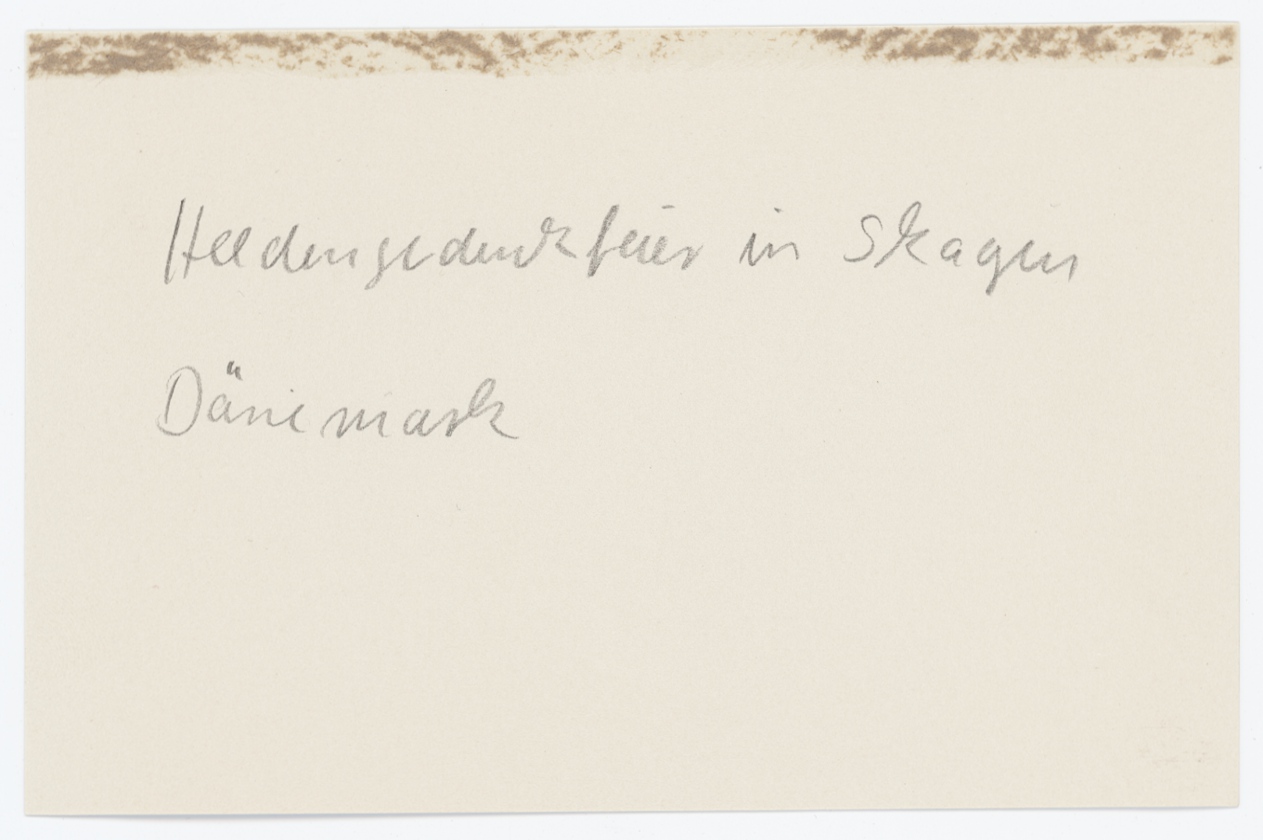 Heldengedenkfeier in Skagen
Dänemark